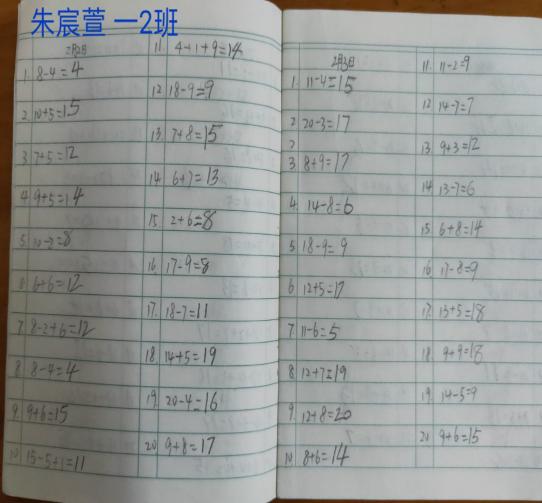 朱宸萱 一2班
2月2日
1. 8-4=4
2. 10+5=15
3. 7+5=12
4. 9+5=14
5. 10-2=8
6. 6+6=12
7. 8-2+6=12
8. 8-4=4
9. 9+6=15
10. 15-5+1=11
11. 4+1+9=14
12. 18-9=9
13. 7+8=15
14. 6+7=13
15. 2+6=8
16. 17-9=8
17. 18-7=11
18. 14+5=19
19. 20-4=16
20. 9+8=17
2月3日
1. 11-4=15
2. 20-3=17
3. 8+9=17
4. 14-8=6
5. 18-9=9
6. 12+5=17
7. 11-6=5
8. 12+7=19
9. 12+8=20
10. 8+6=14
11. 11-2=9
12. 14-7=7
13. 9+3=12
14. 13-7=6
15. 6+8=14
16. 17-8=9
17. 13+5=18
18. 9+9=18
19. 14-5=9
20. 9+6=15